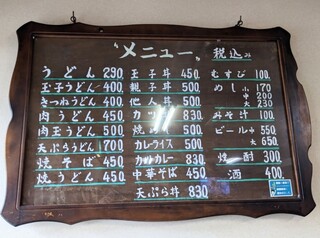 〝メニュー〟 税込み
うどん 290
玉子うどん 400
きつねうどん 400
肉うどん 450
肉玉うどん 500
天ぷらうどん 700
焼そば 450
焼うどん 450
玉子丼 450
親子丼 500
他人丼 500
カツ丼 830
焼めし 500
カレーライス 500
カツカレー 830
中華そば 450
天ぷら丼 830
むすび 100
めし 小 170
中 200
大 230
みそ汁 100
ビール 中 550
大 650
焼酎 300
酒 400